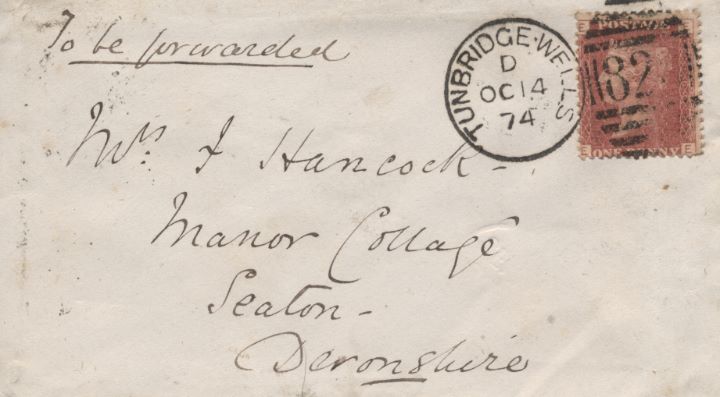 To be forwarded
TUNBRIDGE-WELLS
D
OC 14
74
POSTAGE
E
82
E ONE PENNY E
Mrs J Hancock -
Manor Cottage
Seaton -
Devonshire